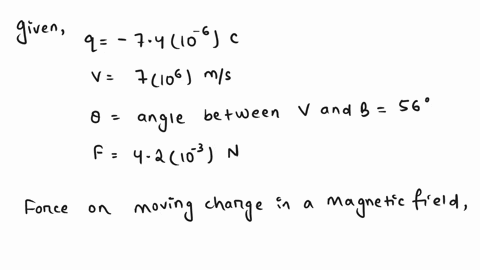 given,
q = - 7.4 (10⁻⁶) C
V = 7 (10⁶) m/s
θ = angle between V and B = 56°
F = 4.2 (10⁻³) N
Force on moving charge in a magnetic field,